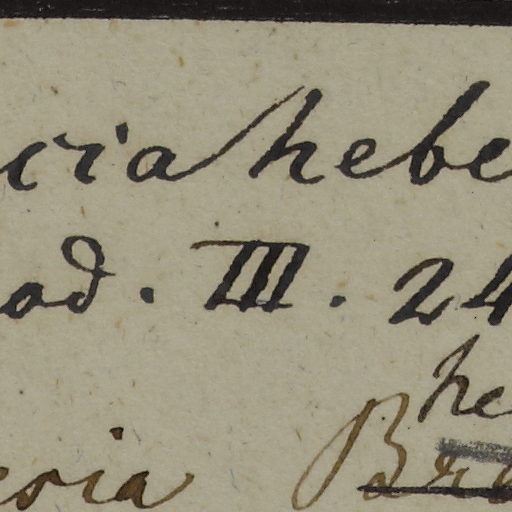 cia hebe
od. III. 24
he
eria Bra